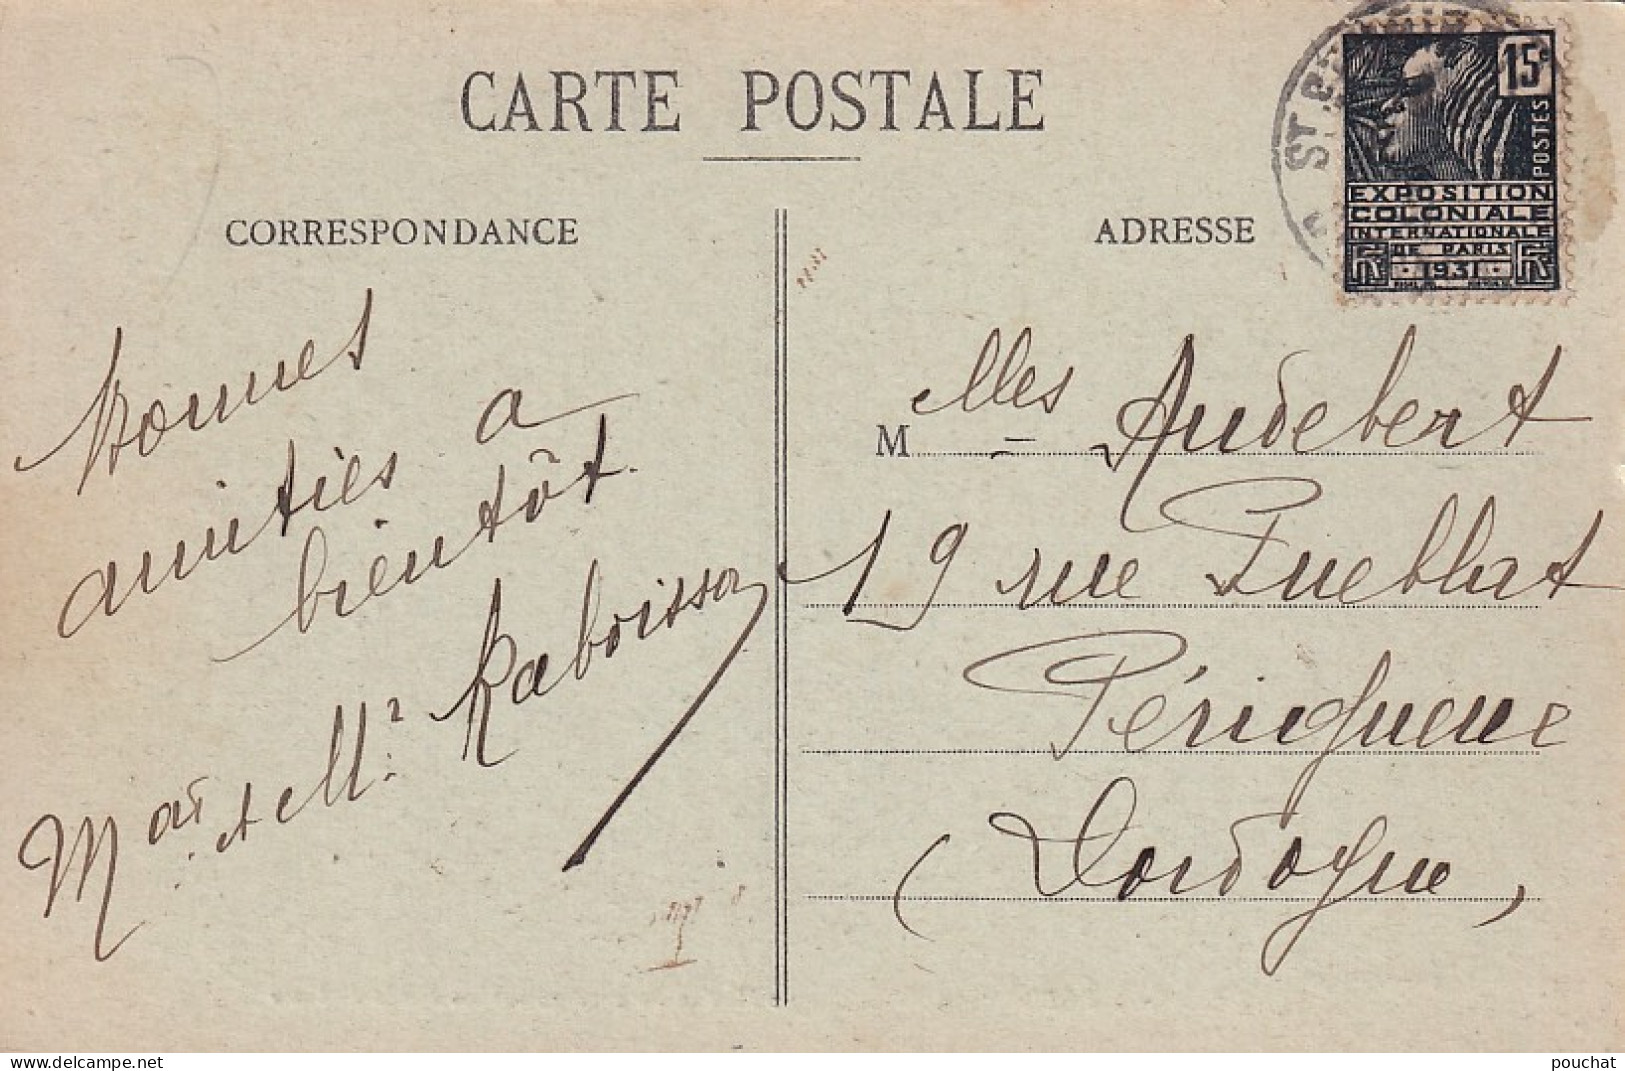 CARTE POSTALE
CORRESPONDANCE
ADRESSE
ST
15c
POSTES
EXPOSITION
COLONIALE
INTERNATIONALE
DE PARIS
1931
RF RF
Bonnes
amitiés a
bientôt.
Mme et Mr Raboisson
M
elles Audebert
19 rue Pueblat
Périgueux
(Dordogne)
delcampe.net
pouchat